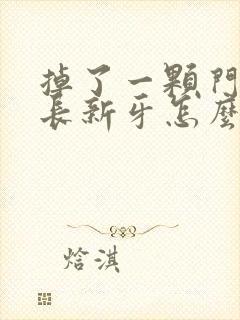 掉了一顆門
長新牙怎麼
焓淇